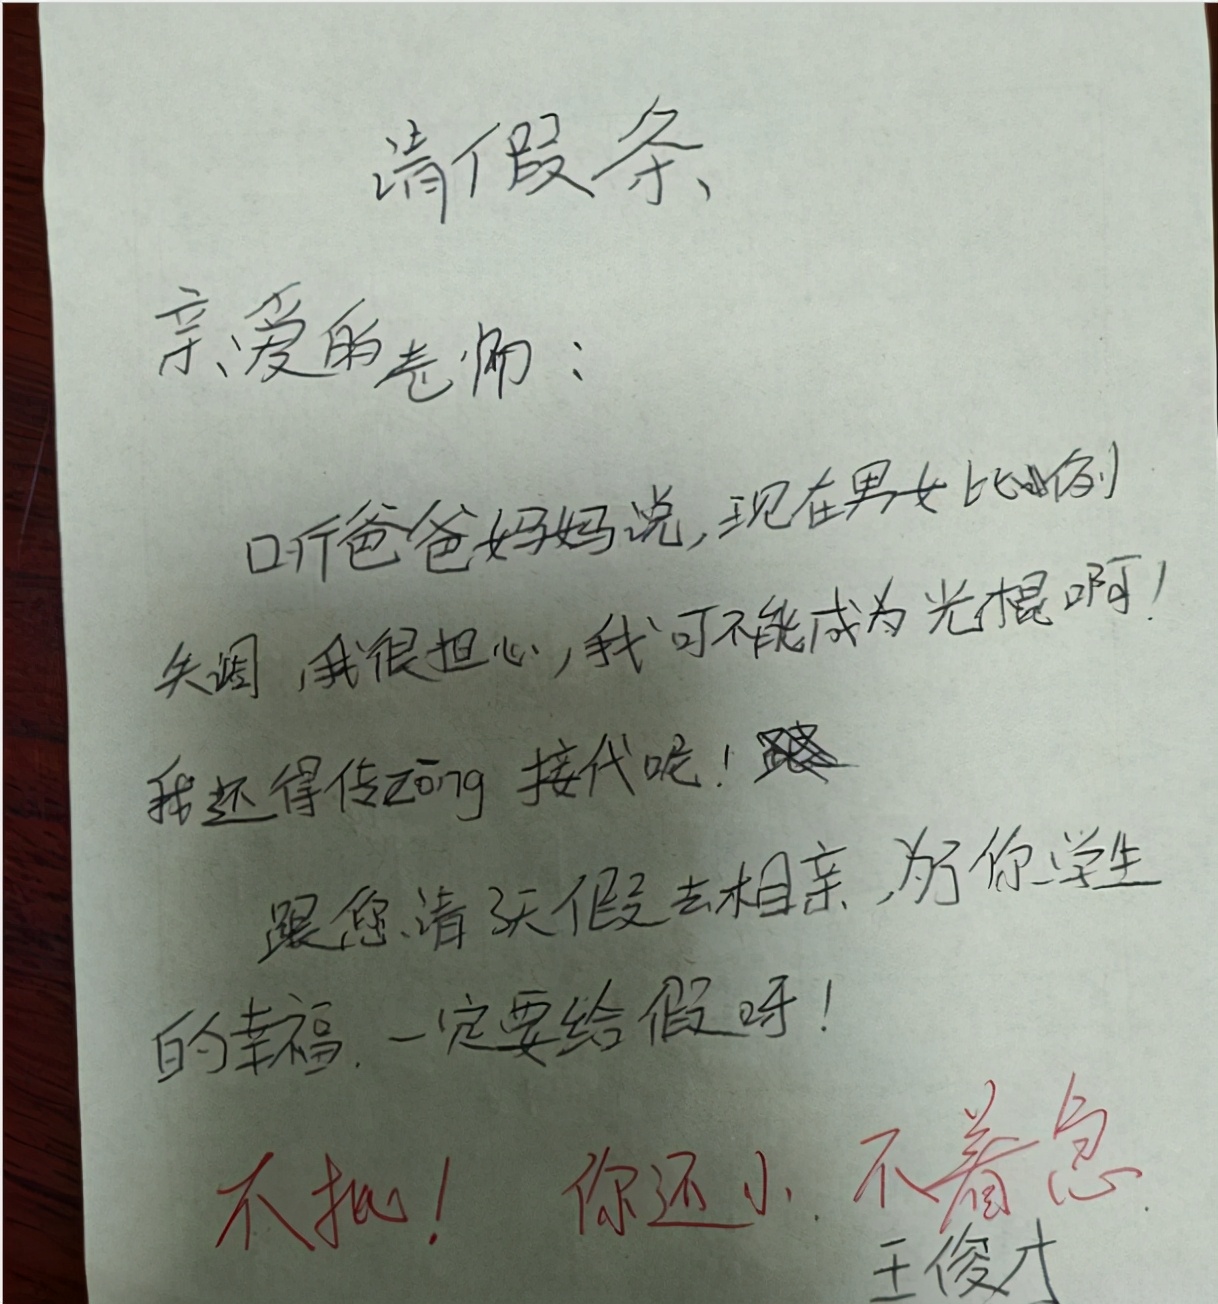 请假条
亲爱的老师：
听爸爸妈妈说，现在男女比例
失调，我很担心，我可不能成为光棍啊！
我还得传zōng接代呢！
跟您请3天假去相亲，为了你学生
的幸福．一定要给假呀！
不批！ 你还小．不着急．
王俊才